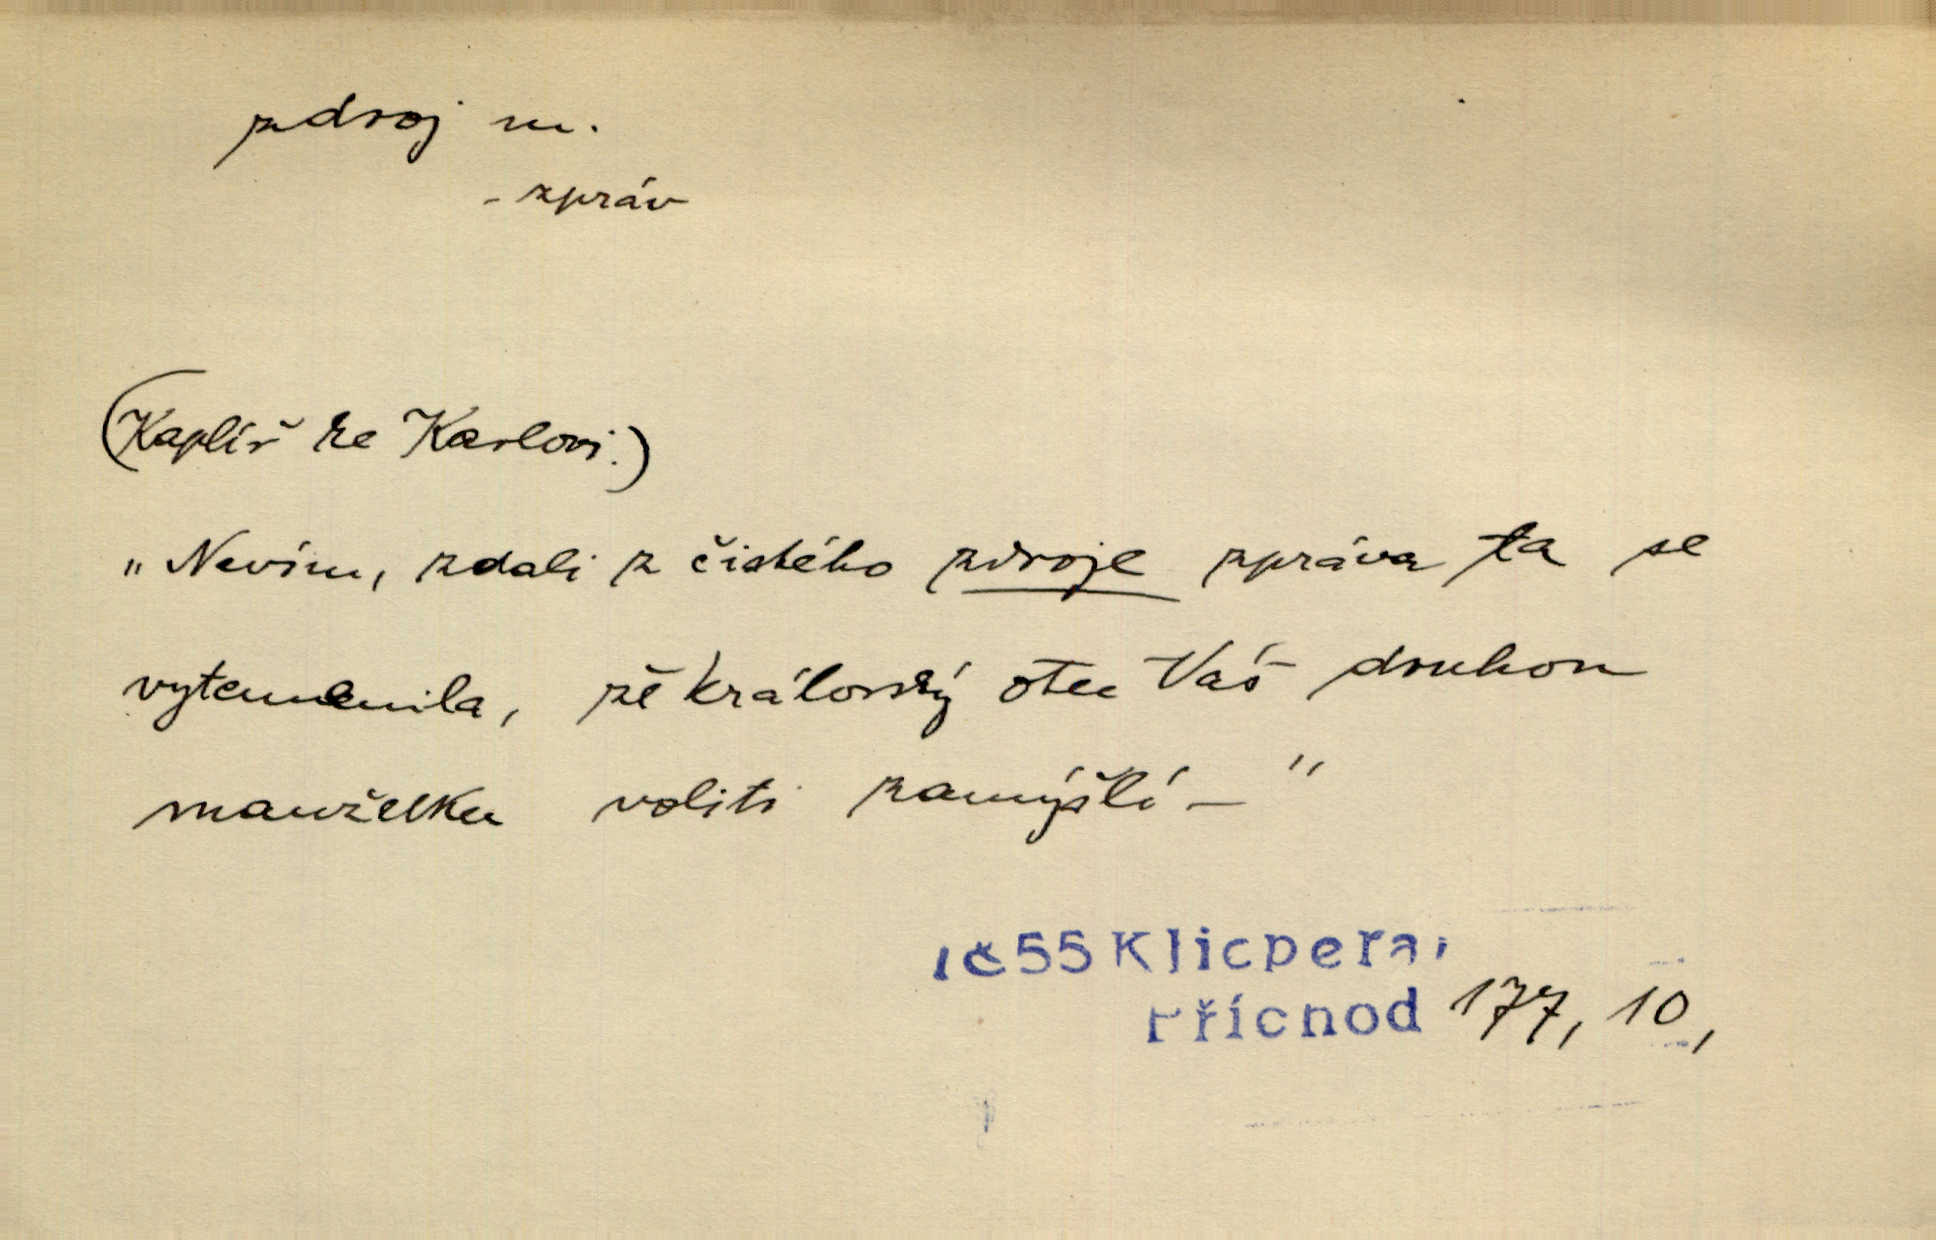 zdroj m.
- zpráv
(Kaplíř ke Karlovi.)
„Nevím, zdali z čistého zdroje zpráva ta se
vytemenila, žě královský otec Váš druhou
manželku voliti zamýšlí — "
1855 Klicpera,
Příchod 177, 10,